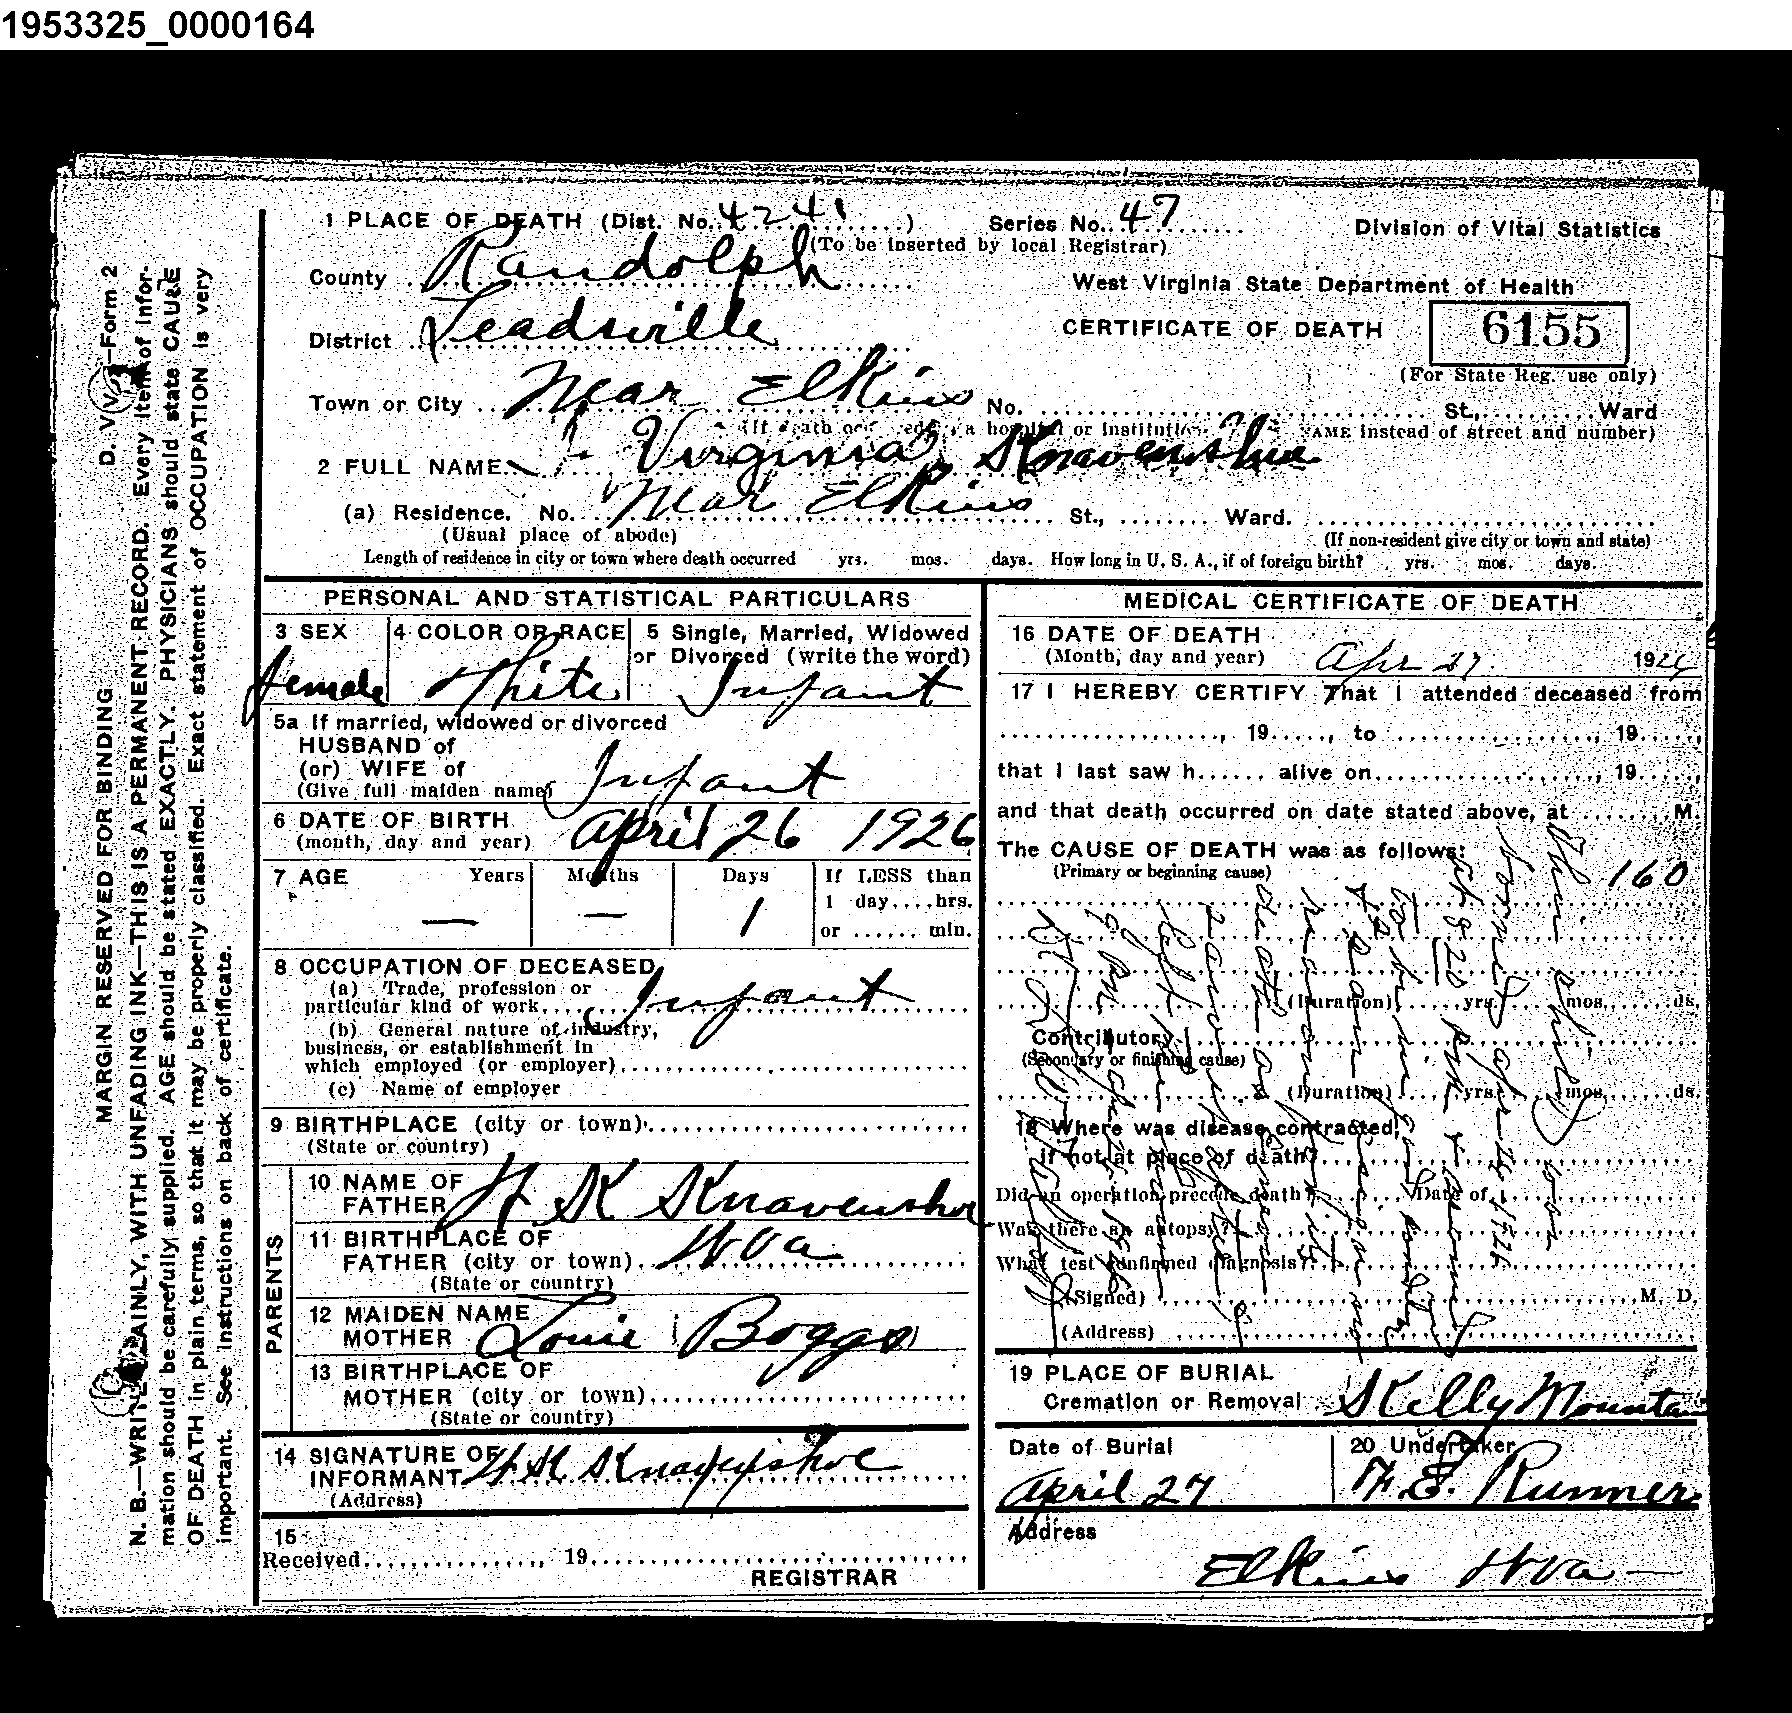 1953325_0000164
1 PLACE OF DEATH (Dist. No. 4241 ) Series No. 47
(To be inserted by local Registrar)
Division of Vital Statistics
County Randolph
West Virginia State Department of Health
District Leadsville
CERTIFICATE OF DEATH 6155
(For State Reg. use only)
Town or City Near Elkins No. St., Ward
(If death occurred a hospital or institution NAME instead of street and number)
2 FULL NAME Virginia Knavenshue
(a) Residence. No. Near Elkins St., Ward.
(Usual place of abode) (If non-resident give city or town and state)
Length of residence in city or town where death occurred yrs. mos. days. How long in U. S. A., if of foreign birth? yrs. mos. days.
PERSONAL AND STATISTICAL PARTICULARS
3 SEX 4 COLOR OR RACE 5 Single, Married, Widowed
or Divorced (write the word)
female White Infant
5a If married, widowed or divorced
HUSBAND of
(or) WIFE of
(Give full maiden name) Infant
6 DATE OF BIRTH
(month, day and year) April 26 1926
7 AGE Years Months Days If LESS than
1 day....hrs.
or ...... min.
— — 1
8 OCCUPATION OF DECEASED
(a) Trade, profession or
particular kind of work Infant
(b) General nature of industry,
business, or establishment in
which employed (or employer)
(c) Name of employer
9 BIRTHPLACE (city or town)
(State or country)
PARENTS
10 NAME OF
FATHER H K Knavenshue
11 BIRTHPLACE OF
FATHER (city or town) W Va
(State or country)
12 MAIDEN NAME
MOTHER Louie Boggs
13 BIRTHPLACE OF
MOTHER (city or town)
(State or country)
14 SIGNATURE OF
INFORMANT H K Knavenshue
(Address)
15
Received , 19
REGISTRAR
MEDICAL CERTIFICATE OF DEATH
16 DATE OF DEATH
(Month, day and year) Apr 27 1926
17 I HEREBY CERTIFY That I attended deceased from
, 19....., to , 19.....,
that I last saw h...... alive on , 19.....,
and that death occurred on date stated above, at M.
The CAUSE OF DEATH was as follows:
(Primary or beginning cause) 160
(Duration) yrs. mos. ds.
Contributory
(Secondary or finishing cause)
(Duration) yrs. mos. ds.
18 Where was disease contracted,
if not at place of death?
Did an operation precede death? Date of
Was there an autopsy?
What test confirmed diagnosis?
(Signed) M. D.
(Address)
This child was
born Apr 26 1926
at 8 20 PM
19 PLACE OF BURIAL
Cremation or Removal Kelly Mountain
Date of Burial
April 27
20 Undertaker
F. E. Runner
Address
Elkins W Va
D. V. V.—Form 2
MARGIN RESERVED FOR BINDING
N. B.—WRITE PLAINLY, WITH UNFADING INK—THIS IS A PERMANENT RECORD. Every item of infor-
mation should be carefully supplied. AGE should be stated EXACTLY. PHYSICIANS should state CAUSE
OF DEATH in plain terms, so that it may be properly classified. Exact statement of OCCUPATION is very
important. See instructions on back of certificate.